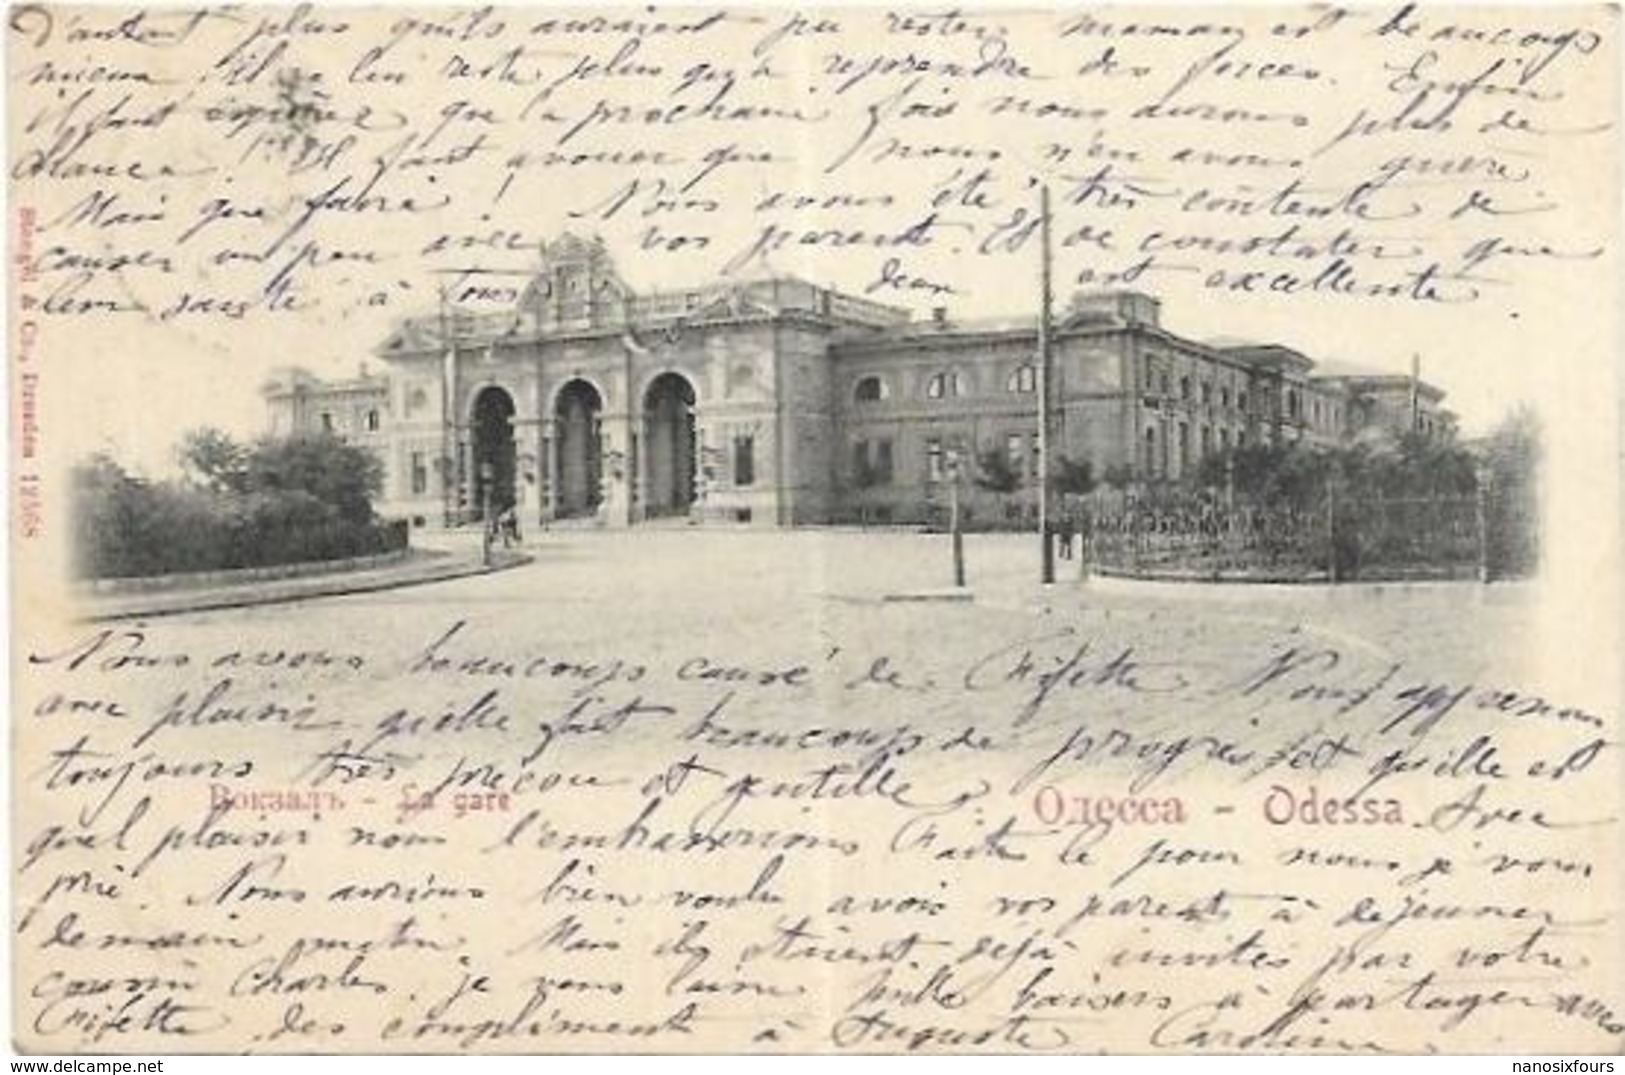 D'autant plus qu'ils auraient pu rester maman est beaucoup
mieux, il ne lui reste plus qu'à reprendre des forces. Enfin
il faut espérer que la prochaine fois nous aurons plus de
chance! Il faut avouer que nous n'en avons guère
Mais que faire! Nous avons été très contente de
causer un peu avec vos parents. Et de constater que
leur santé à tous deux est excellente
Stengel & Co., Dresden 12568
Nous avons beaucoup causé de Fifette. Nous apprenons
avec plaisir qu'elle fait beaucoup de progrès et qu'elle est
toujours très précoce et gentille. Avec
Вокзалъ - La gare
Одесса - Odessa
quel plaisir nous l'embrasserions Faites le pour nous je vous
prie. Nous aurions bien voulu avoir vos parents à déjeuner
demain matin. Mais ils étaient déjà invités par votre
cousin Charles. je vous laisse Mille baisers à partager avec
Fifette, des compliments à Auguste. Caroline.
nanosixfours